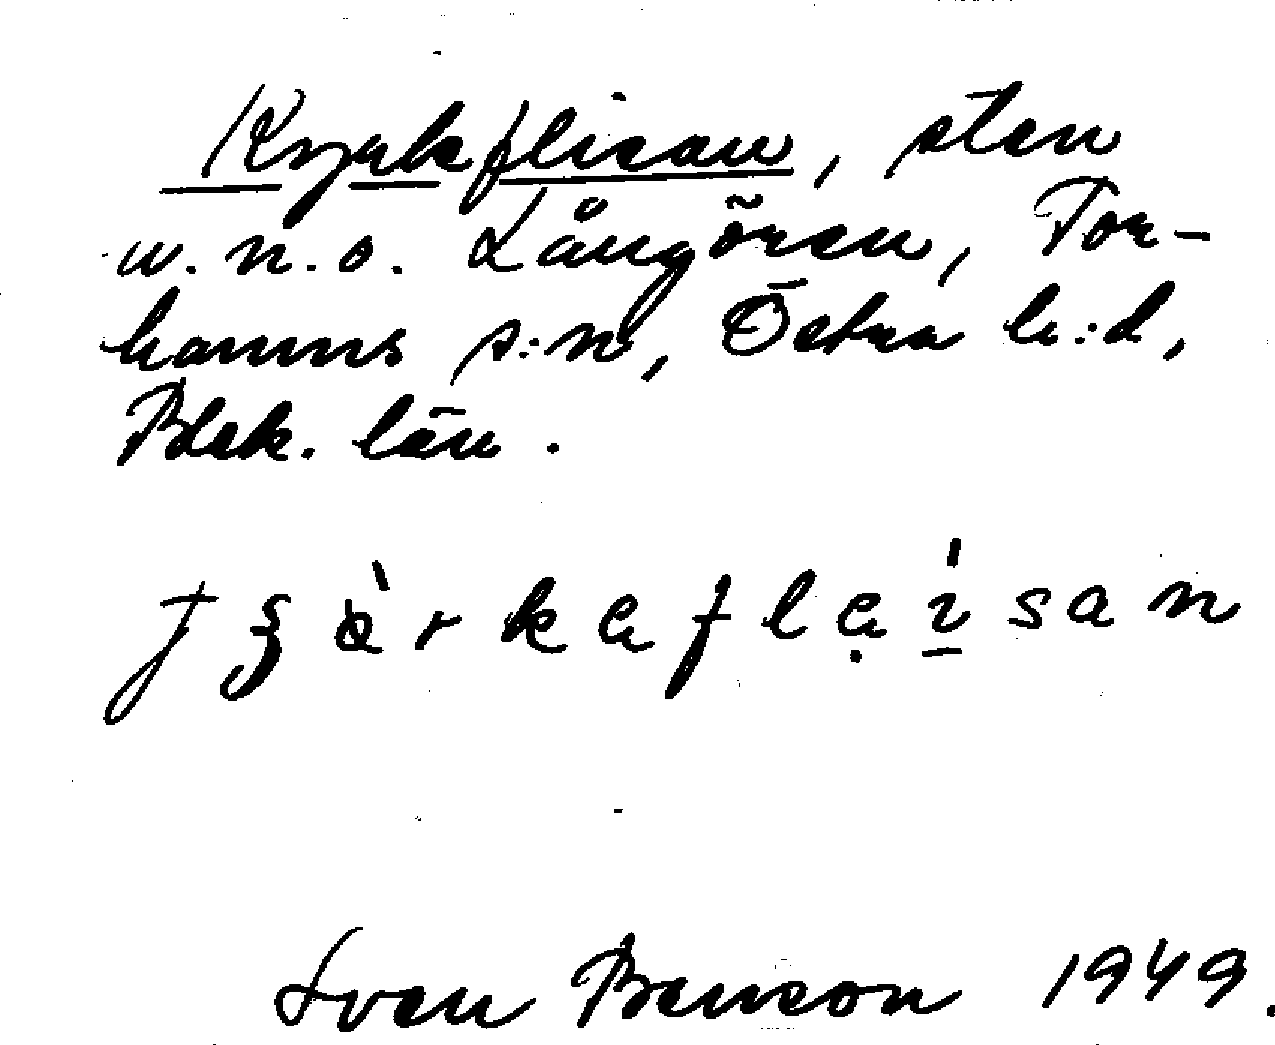 Kyrkeflisan, sten
w.n.o. Långören, Tor-
hamns s:n, Östra h:d,
Blek. län.
Sven Benson 1949.